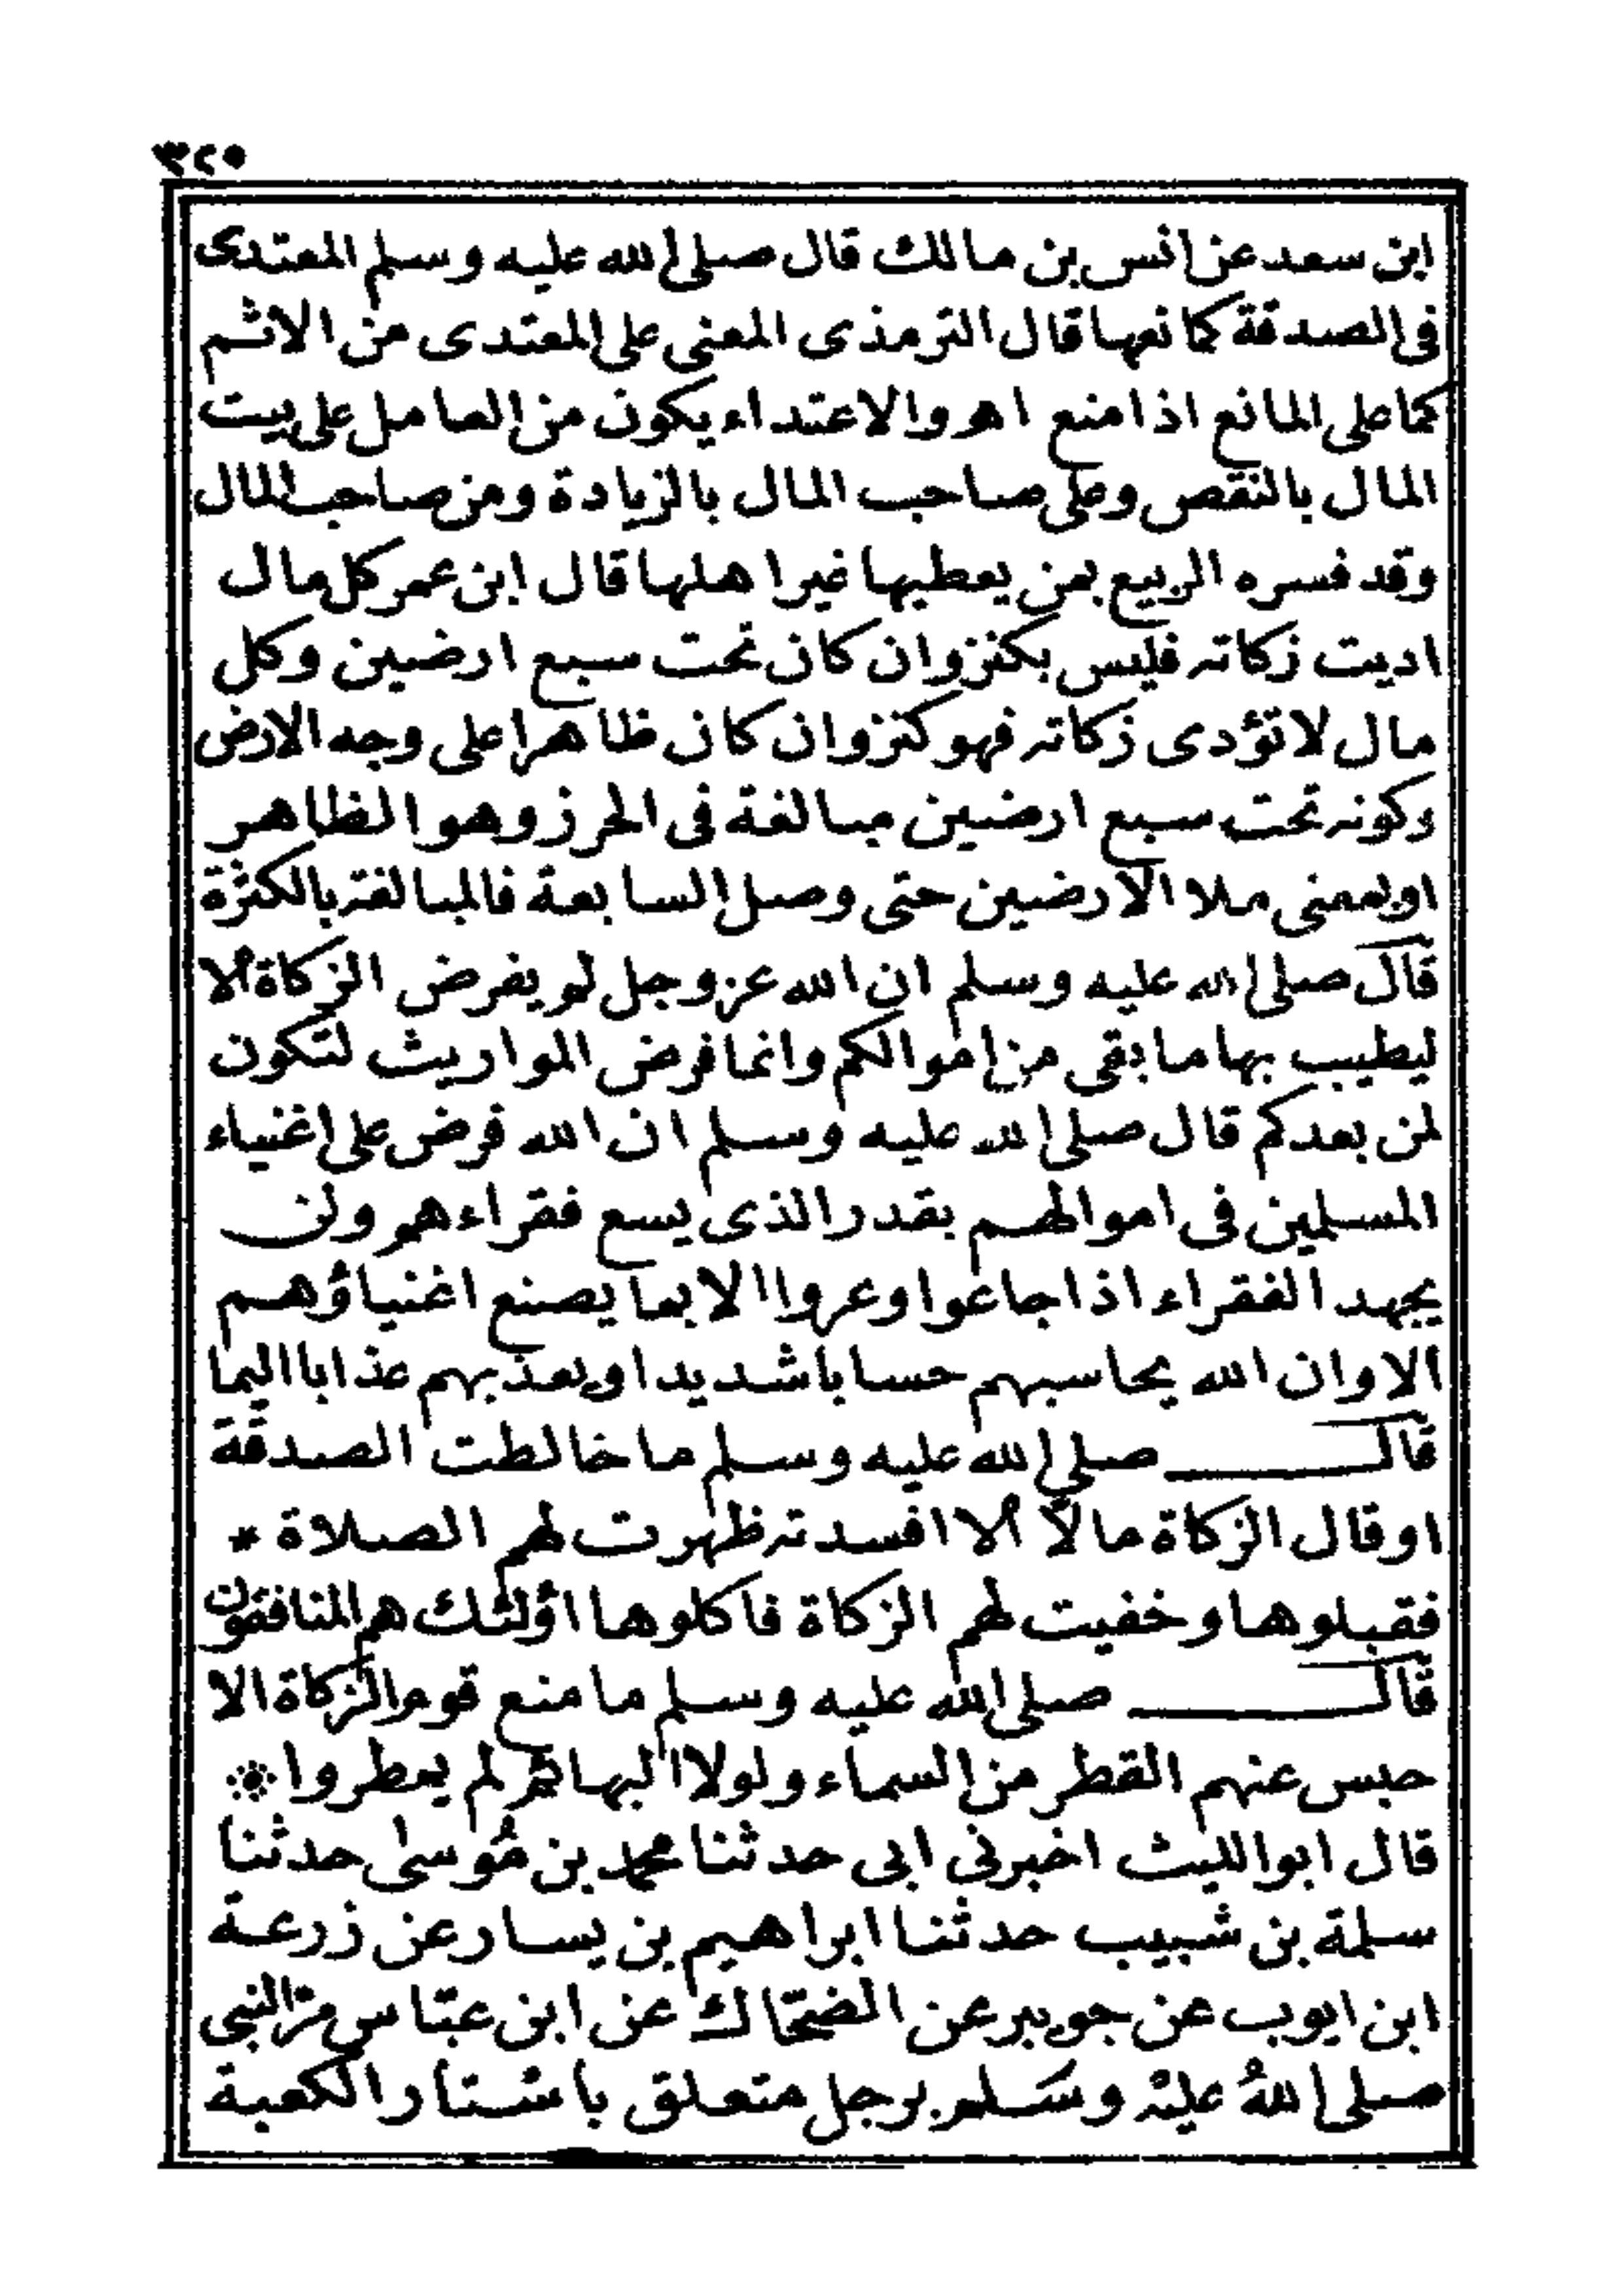 ٣٢٥
ابن سعد عن انس بن مالك قال صلى الله عليه وسلم المعتدى
فى الصدقة كمانعها قال الترمذى المعنى على المعتدى من الاثم
كما على المانع اذا منع اهـ والاعتداء يكون من العامل على بيت
المال بالنقص وعلى صاحب المال بالزيادة ومن صاحب المال
وقد فسره الربيع بمن يعطيها غير اهلها قال ابن عمر كل مال
اديت زكاته فليس بكنز وان كان تحت سبع ارضين وكل
مال لا تؤدى زكاته فهو كنز وان كان ظاهرا على وجه الارض
وكونه تحت سبع ارضين مبالغة فى الحرز وهو الظاهر
او بمعنى ملا الارضين حتى وصل السابعة فالمبالغة بالكثرة
قال صلى الله عليه وسلم ان الله عز وجل لم يفرض الزكاة الا
ليطيب بها ما بقى من اموالكم وانما فرض المواريث لتكون
لمن بعدكم قال صلى الله عليه وسلم ان الله فرض على اغنياء
المسلمين فى اموالهم بقدر الذى يسع فقراءهم ولن
يجهد الفقراء اذا جاعوا وعروا الا بما يصنع اغنياؤهم
الا وان الله يحاسبهم حسابا شديدا ويعذبهم عذابا اليما
قال صلى الله عليه وسلم ما خالطت الصدقة
او قال الزكاة مالاً الا افسدته ظهرت لهم الصلاة *
فقبلوها وخفيت لهم الزكاة فاكلوها اؤلئك هم المنافقون
قال صلى الله عليه وسلم ما منع قوم الزكاة الا
حبس عنهم القطر من السماء ولولا البهائم لم يمطروا ۞
قال ابو الليث اخبرنى ابى حدثنا محمد بن مُوسى حدثنا
سلمة بن شبيب حدثنا ابراهيم بن يسار عن زرعة
ابن ايوب عن جويبر عن الضحّاك عن ابن عبّاس مرّ النبى
صلى اللهُ عليْه وسَلم برجل متعلق باستار الكعبة